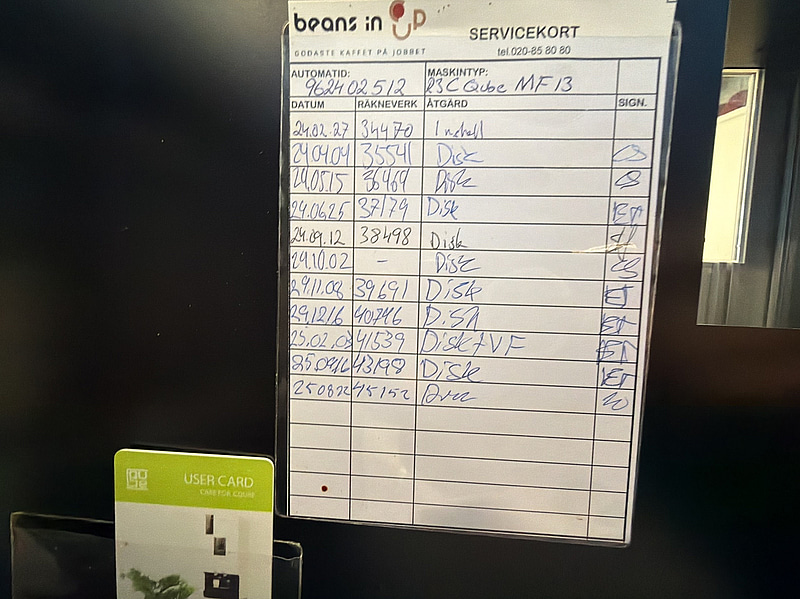 beans in up
GODASTE KAFFET PÅ JOBBET
SERVICEKORT
tel.020-85 80 80
AUTOMATID: 9624 02 512
MASKINTYP: 23 C Qube MF 13
DATUM RÄKNEVERK ÅTGÄRD SIGN.
24.02.27 34470 Install
24.04.04 35541 Disk
24.05.15 36469 Disk
24.06.25 37179 Disk ET
24.09.12 38498 Disk
24.10.02 - Disk
24.11.08 39691 Disk ET
24.12.16 40746 Disk ET
25.02.03 41539 Disk+VF ET
43198 Disk ET
250822 45152
USER CARD
CARE FOR CQUBE